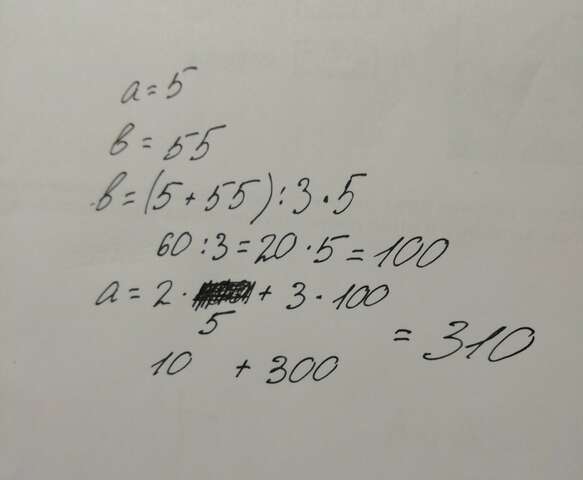 a = 5
в = 55
в = (5 + 55) : 3 · 5
60 : 3 = 20 · 5 = 100
a = 2 · + 3 · 100
5
= 310
10 + 300